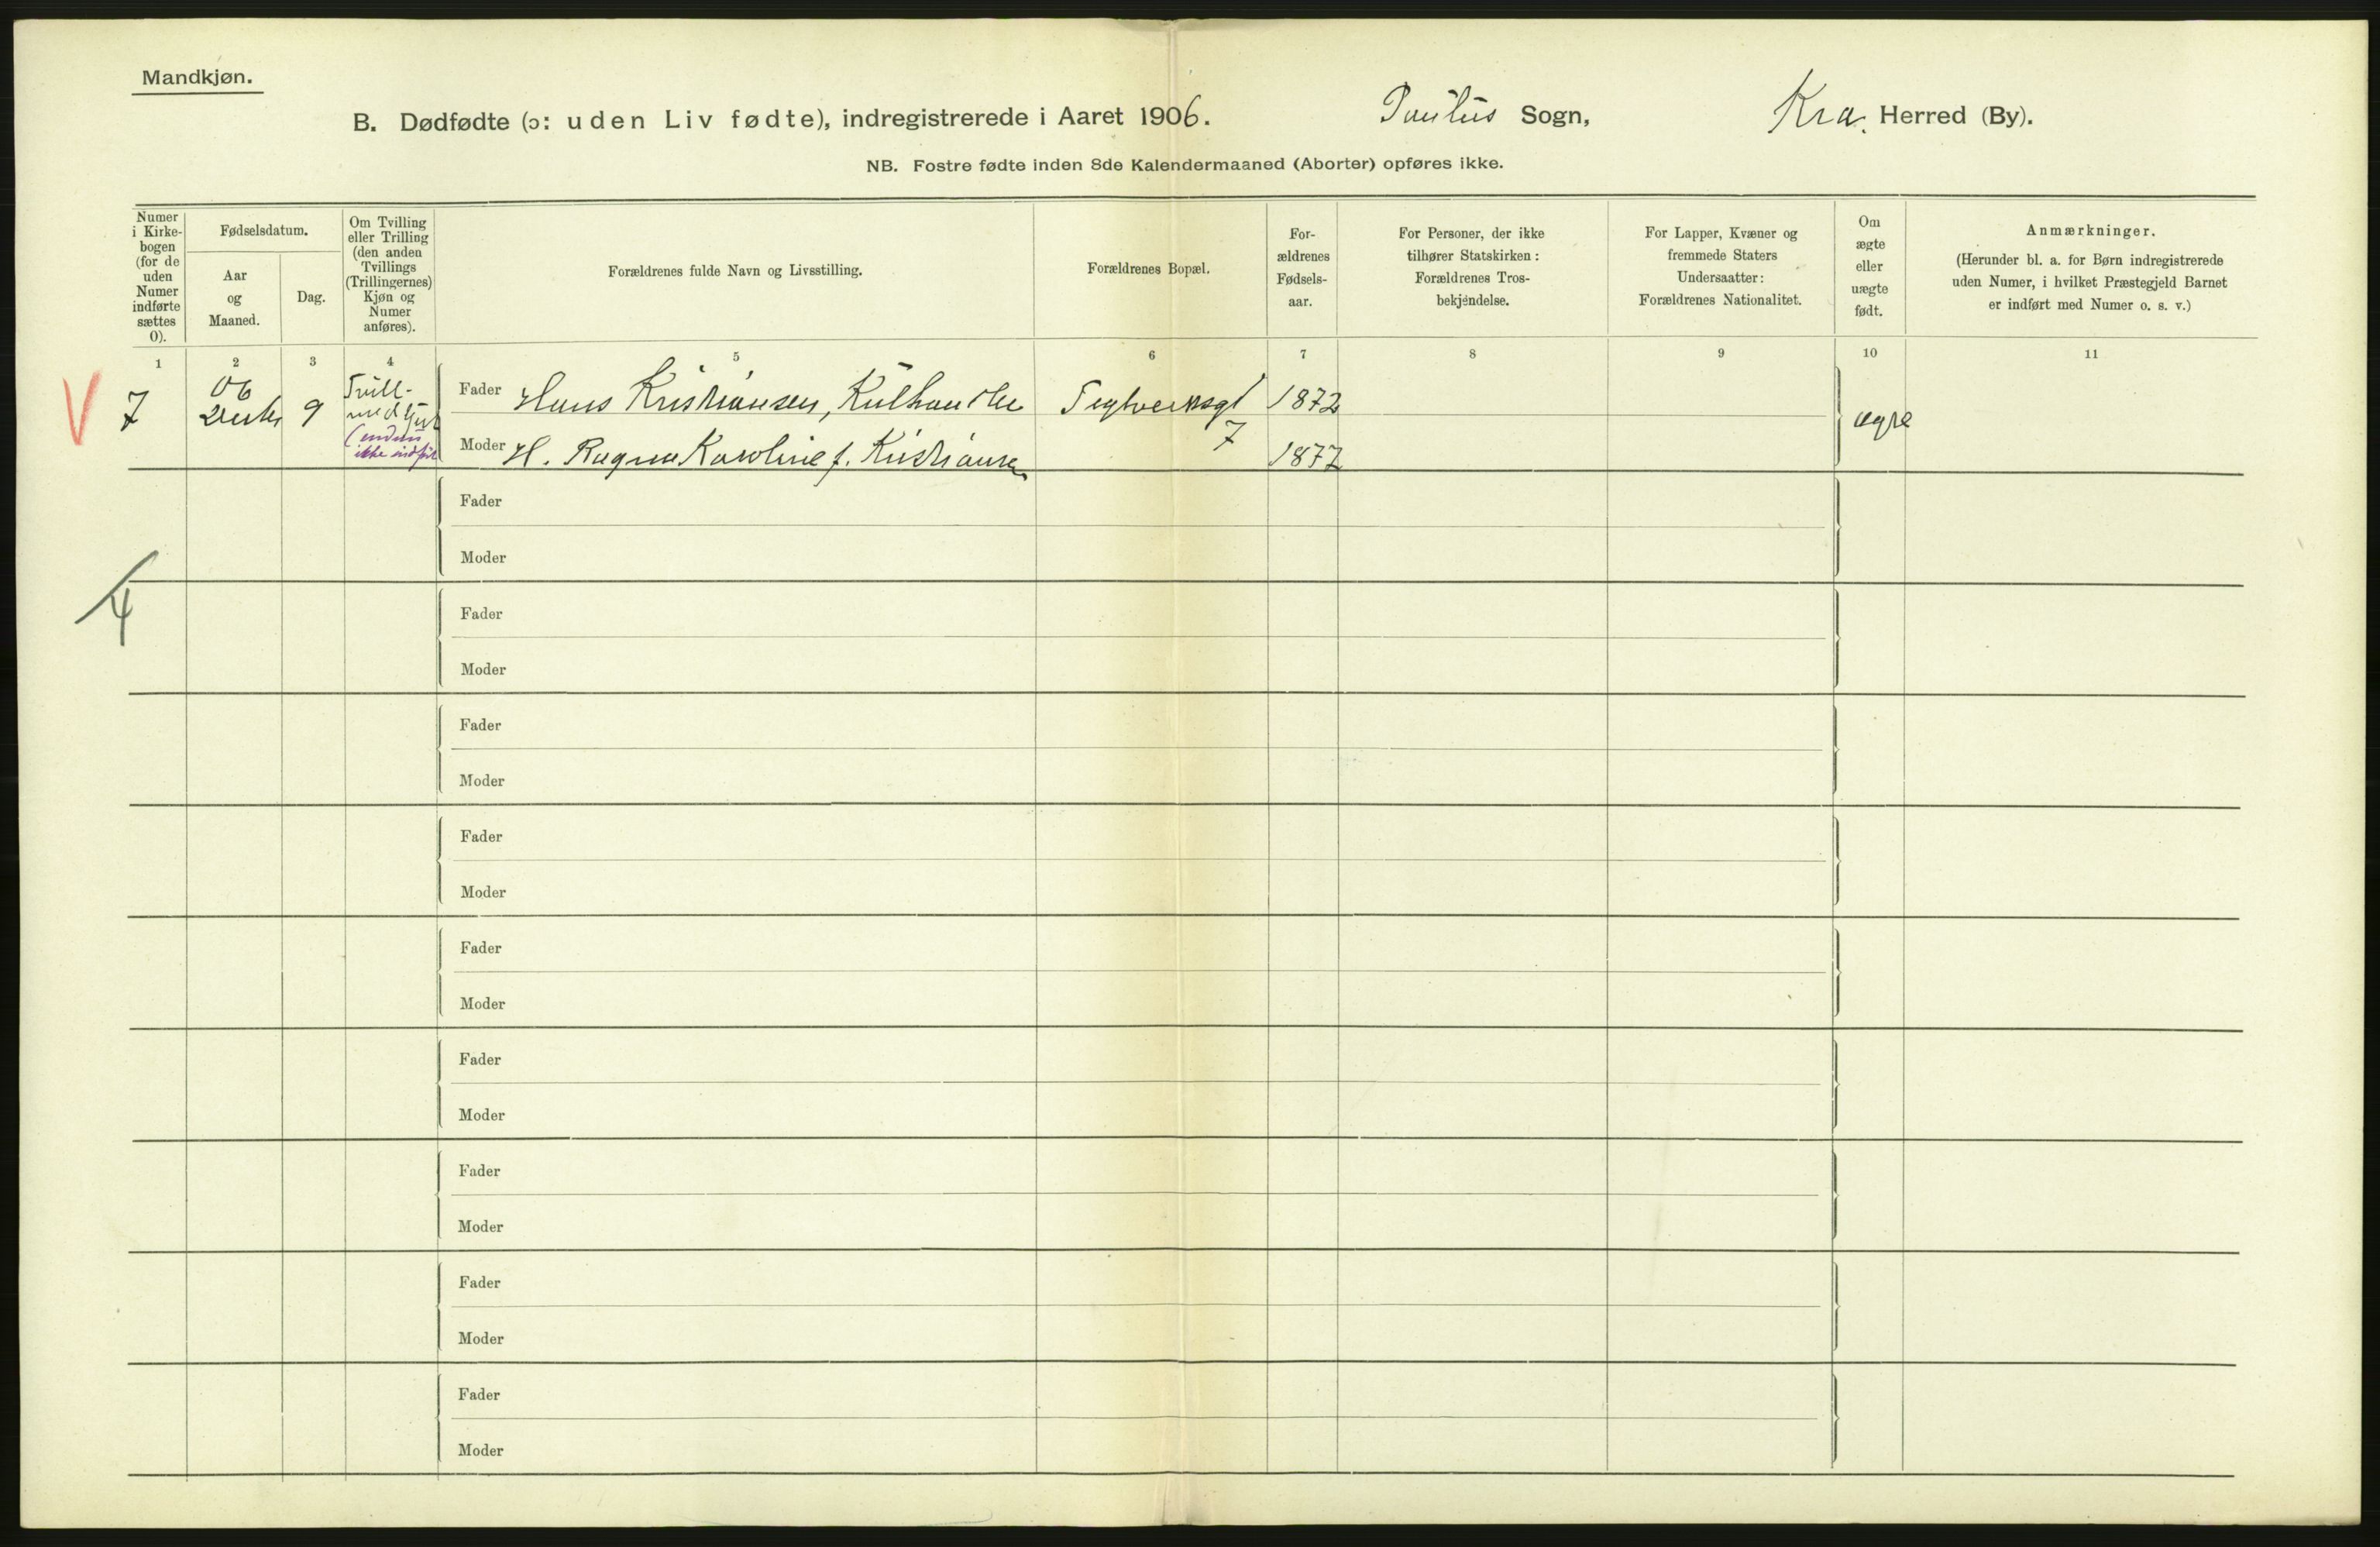 Mandkjøn.
B. Dødfødte (ɔ: uden Liv fødte), indregistrerede i Aaret 1906. Paulus Sogn, Kra. Herred (By).
NB. Fostre fødte inden 8de Kalendermaaned (Aborter) opføres ikke.
Numer
i Kirke-
bogen
(for de
uden
Numer
indførte
sættes
0).
Fødselsdatum.
Aar
og
Maaned.
Dag.
Om Tvilling
eller Trilling
(den anden
Tvillings
(Trillingernes)
Kjøn og
Numer
anføres).
Forældrenes fulde Navn og Livsstilling.
Forældrenes Bopæl.
For-
ældrenes
Fødsels-
aar.
For Personer, der ikke
tilhører Statskirken:
Forældrenes Tros-
bekjendelse.
For Lapper, Kvæner og
fremmede Staters
Undersaatter:
Forældrenes Nationalitet.
Om
ægte
eller
uægte
født.
Anmærkninger.
(Herunder bl. a. for Børn indregistrerede
uden Numer, i hvilket Præstegjeld Barnet
er indført med Numer o. s. v.)
1 2 3 4 5 6 7 8 9 10 11
V 7
06
Decbr 9
Tvill-
med
ikke indført
Fader Hans Kristiansen, Kulhandler Teglverksgt 1872
7
Moder H. Ragna Karoline f. Kristiansen 1877
ægte
Fader
Moder
4
Fader
Moder
Fader
Moder
Fader
Moder
Fader
Moder
Fader
Moder
Fader
Moder
Fader
Moder
Fader
Moder